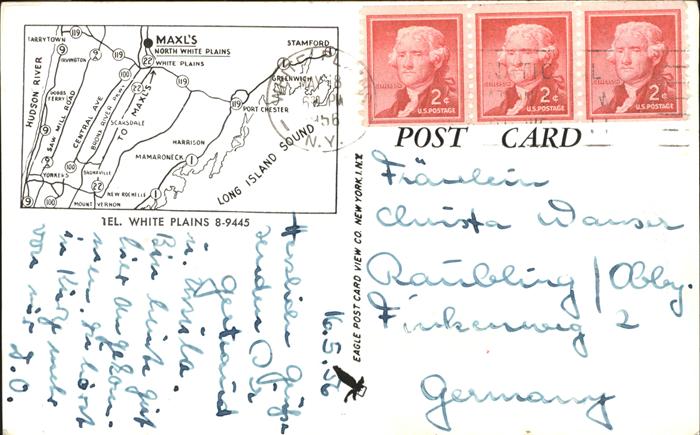 MAXL'S
NORTH WHITE PLAINS
WHITE PLAINS
TARRYTOWN
STAMFORD
IRVINGTON
GREENWICH
HUDSON RIVER
DOBBS FERRY
SAW MILL ROAD
CENTRAL AVE
BRONX RIVER PKWY.
SCARSDALE
TO MAXL'S
PORT CHESTER
HARRISON
MAMARONECK
LONG ISLAND SOUND
YONKERS
NEW ROCHELLE
MOUNT VERNON
9
119
22
100
1
TEL. WHITE PLAINS 8-9445
2¢
U.S. POSTAGE
2¢
U.S. POSTAGE
2¢
U.S. POSTAGE
N.Y.
POST CARD
EAGLE POST CARD VIEW CO. NEW YORK 1, N.Y.
Fräulein
Christa Wanser
Raubling / Obby.
Finkenweg 2
Germany
16.5.56
Herzliche Grüße
senden Dir
Gertraud
u. Ursula.
Bin heute gut
hier angekom-
men. Du hörst
in Kürze mehr
von mir